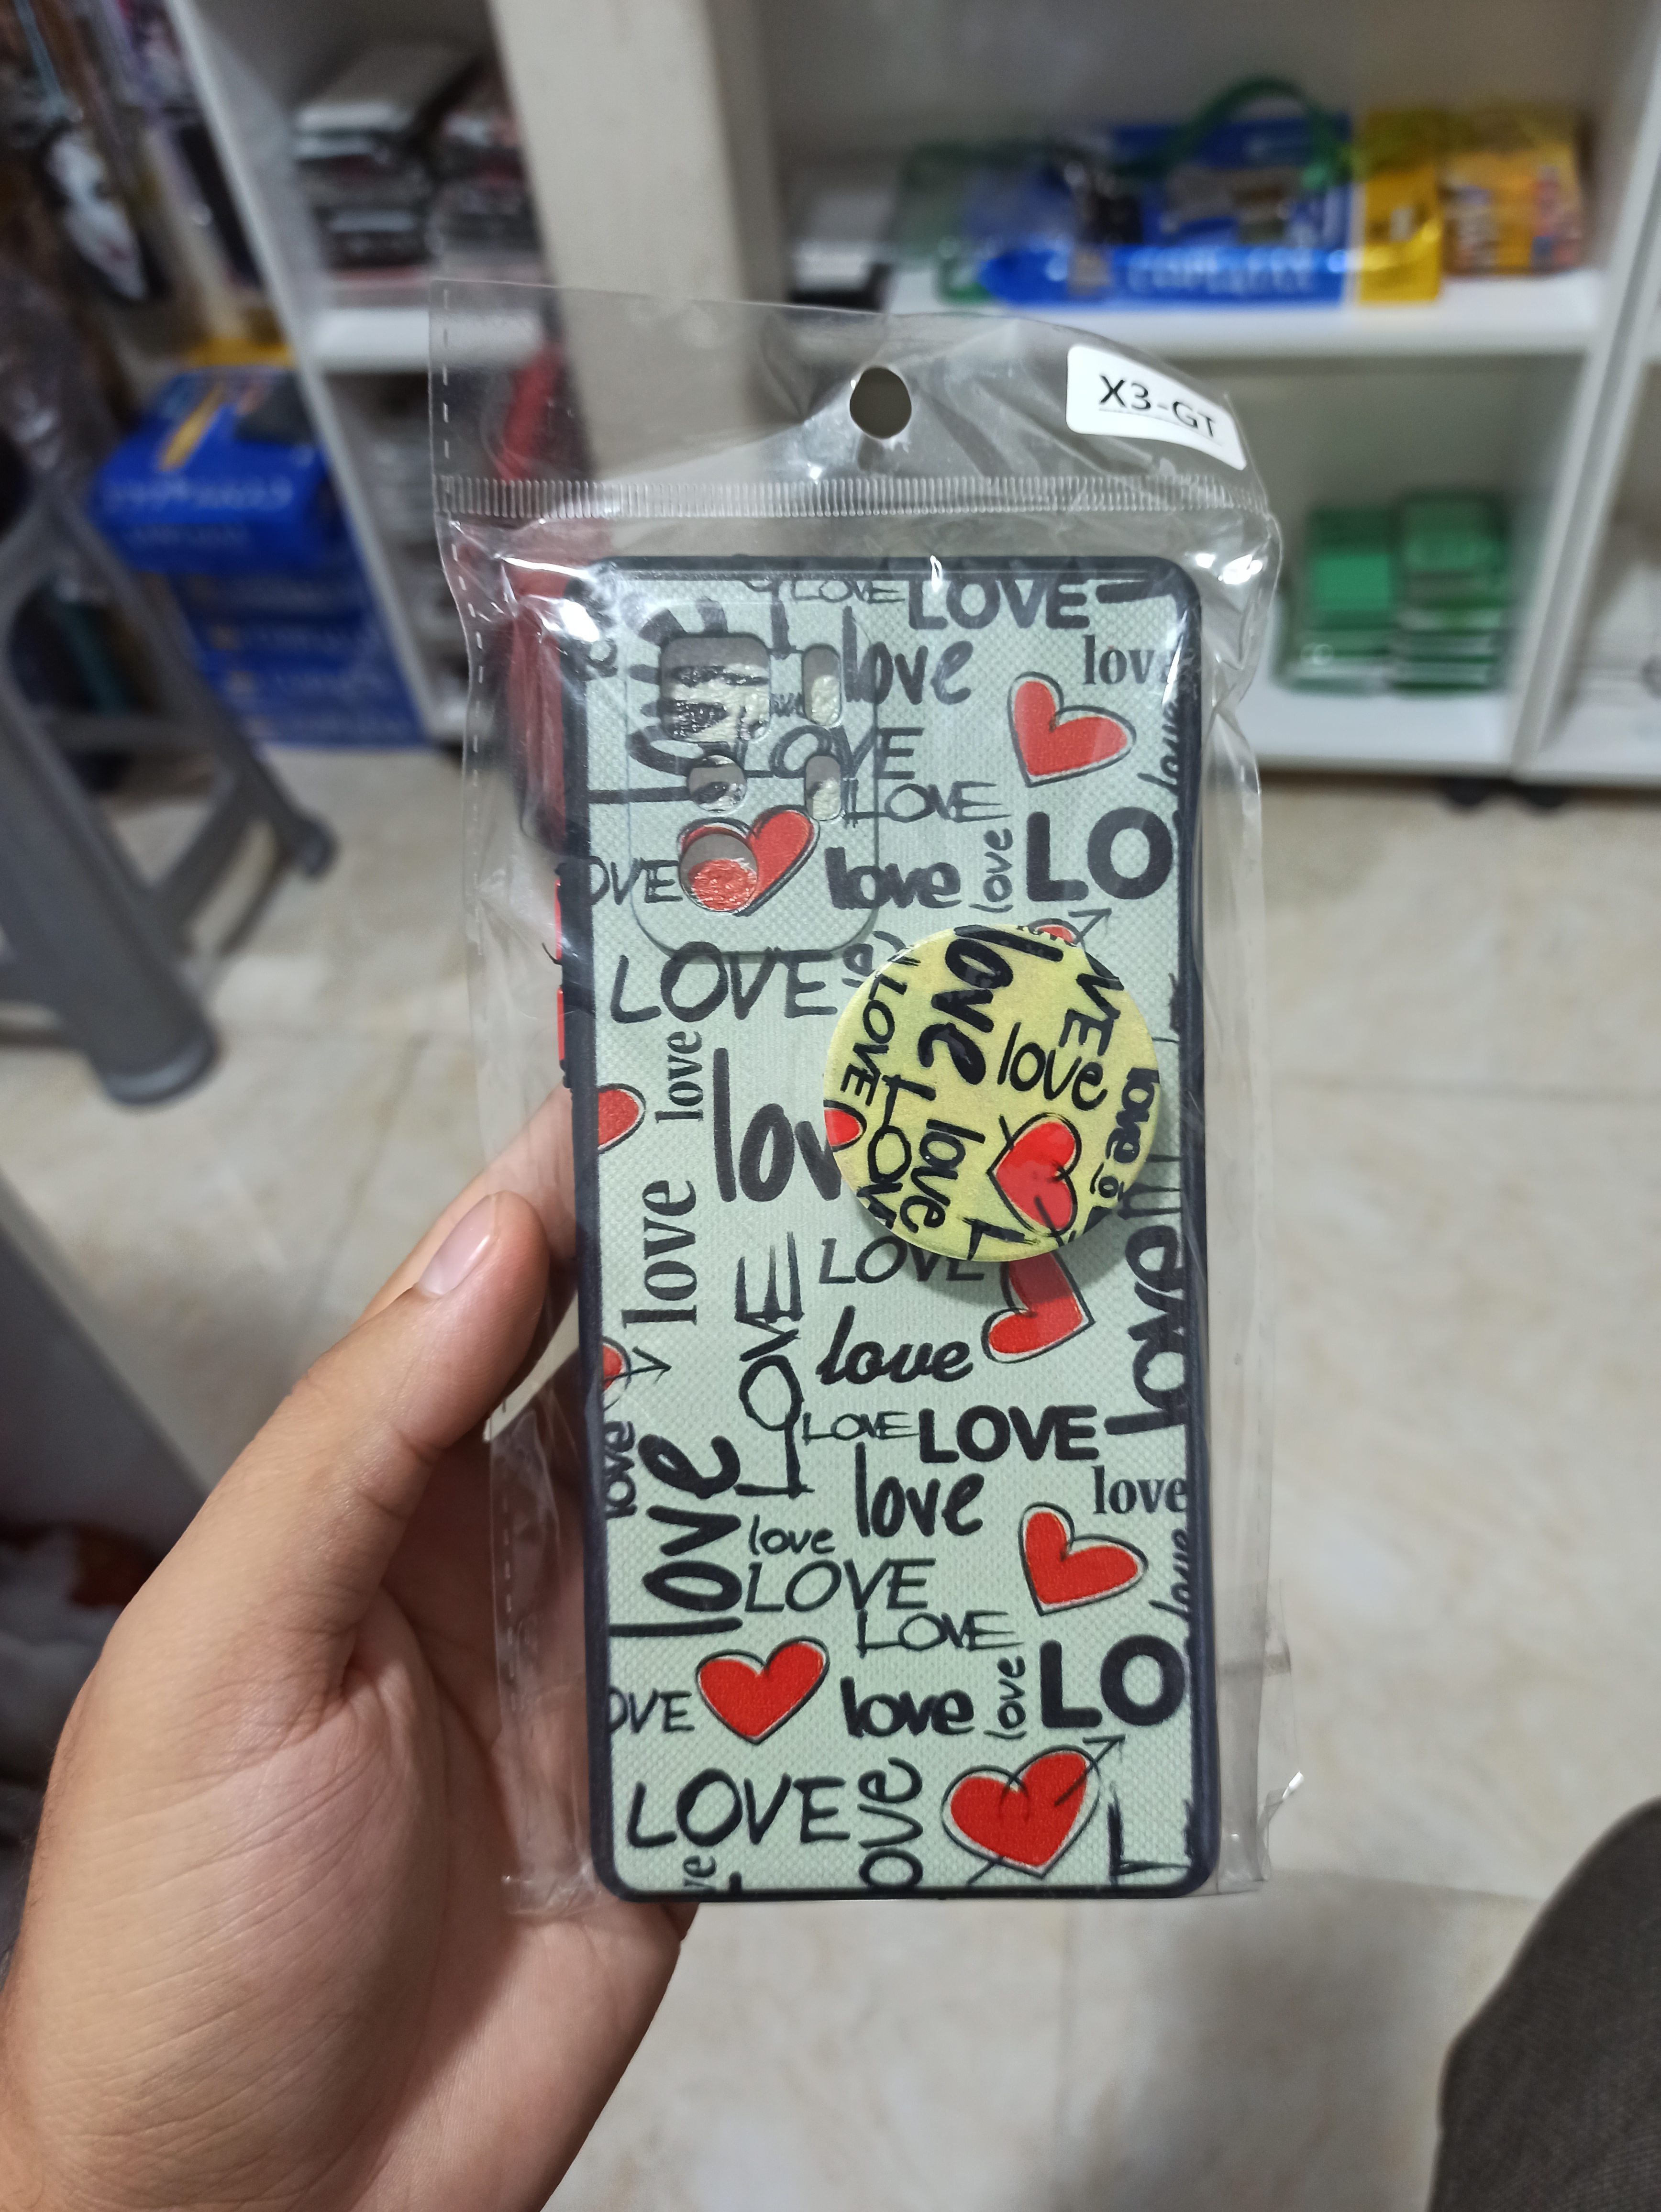 X3-GT
LOVE LOVE
love love
LOVE love
LOVE
love LO
OVE love
LOVE
love
love
LOVE
love
VE
love
LOVE
love
love
LOV
L
lov
love
LOVE
LOVE
love
love
LOVE LOVE
love
love love
love
love
love
LOVE love
LOVE
love LO
OVE love
LOVE
ove
ve
L